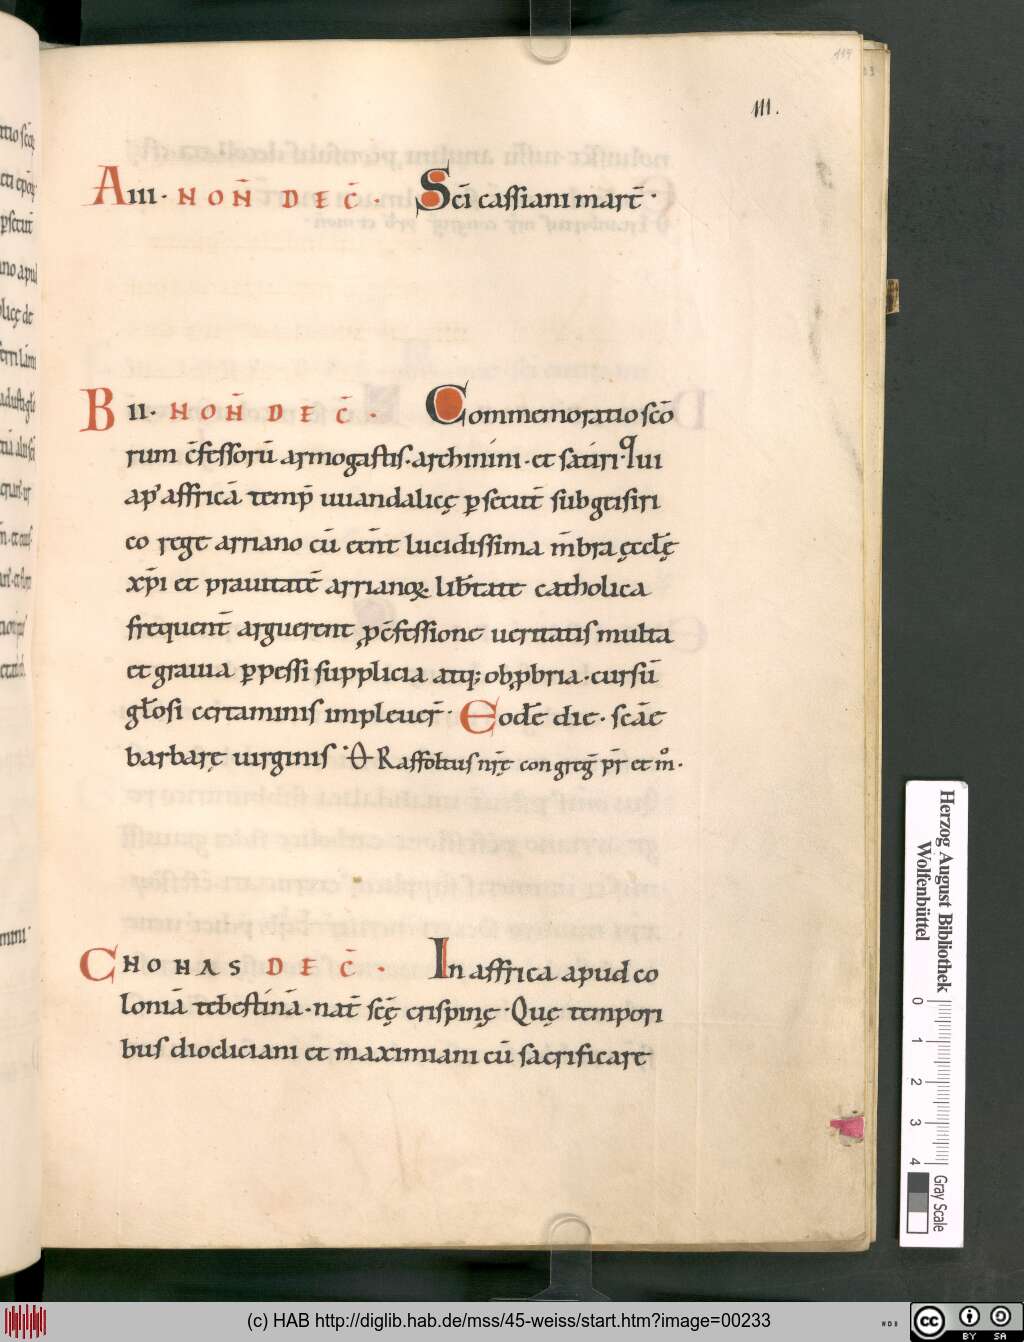 114
III.
A III · NOÑ DEC̄ · Sc̄i cassiani mart̄ ·
B II · NOÑ DEC̄ · Commemoratio sc̄o
rum c̄fessorū armogastis · archinini · et satiri · qui
ap' affricā temp̄ uuandalicę ꝑsecut̄ sub geisiri
co rege arriano cū eēnt lucidissima m̄bra ęccłę
xp̄i et prauitatē arrianoꝝ lib̄tate catholica
frequent̄ arguerent ꝓ c̄fessione ueritatis multa
et grauia ꝑpessi supplicia atq; obꝓbria · cursū
gl̄osi certaminis impleuer̄ · Eodē die · sc̄ae
barbarę uirginis · O Raffoltus nr̄ę congreḡ pr̄ et mͦ ·
C NONAS DEC̄ · In affrica apud co
loniā tebestinā · nat̄ sc̄ę crispinę · Quę tempori
bus diocliciani et maximiani cū sacrificare
Herzog August Bibliothek
Wolfenbüttel
0 1 2 3 4
Gray Scale
(c) HAB http://diglib.hab.de/mss/45-weiss/start.htm?image=00233
cc BY SA